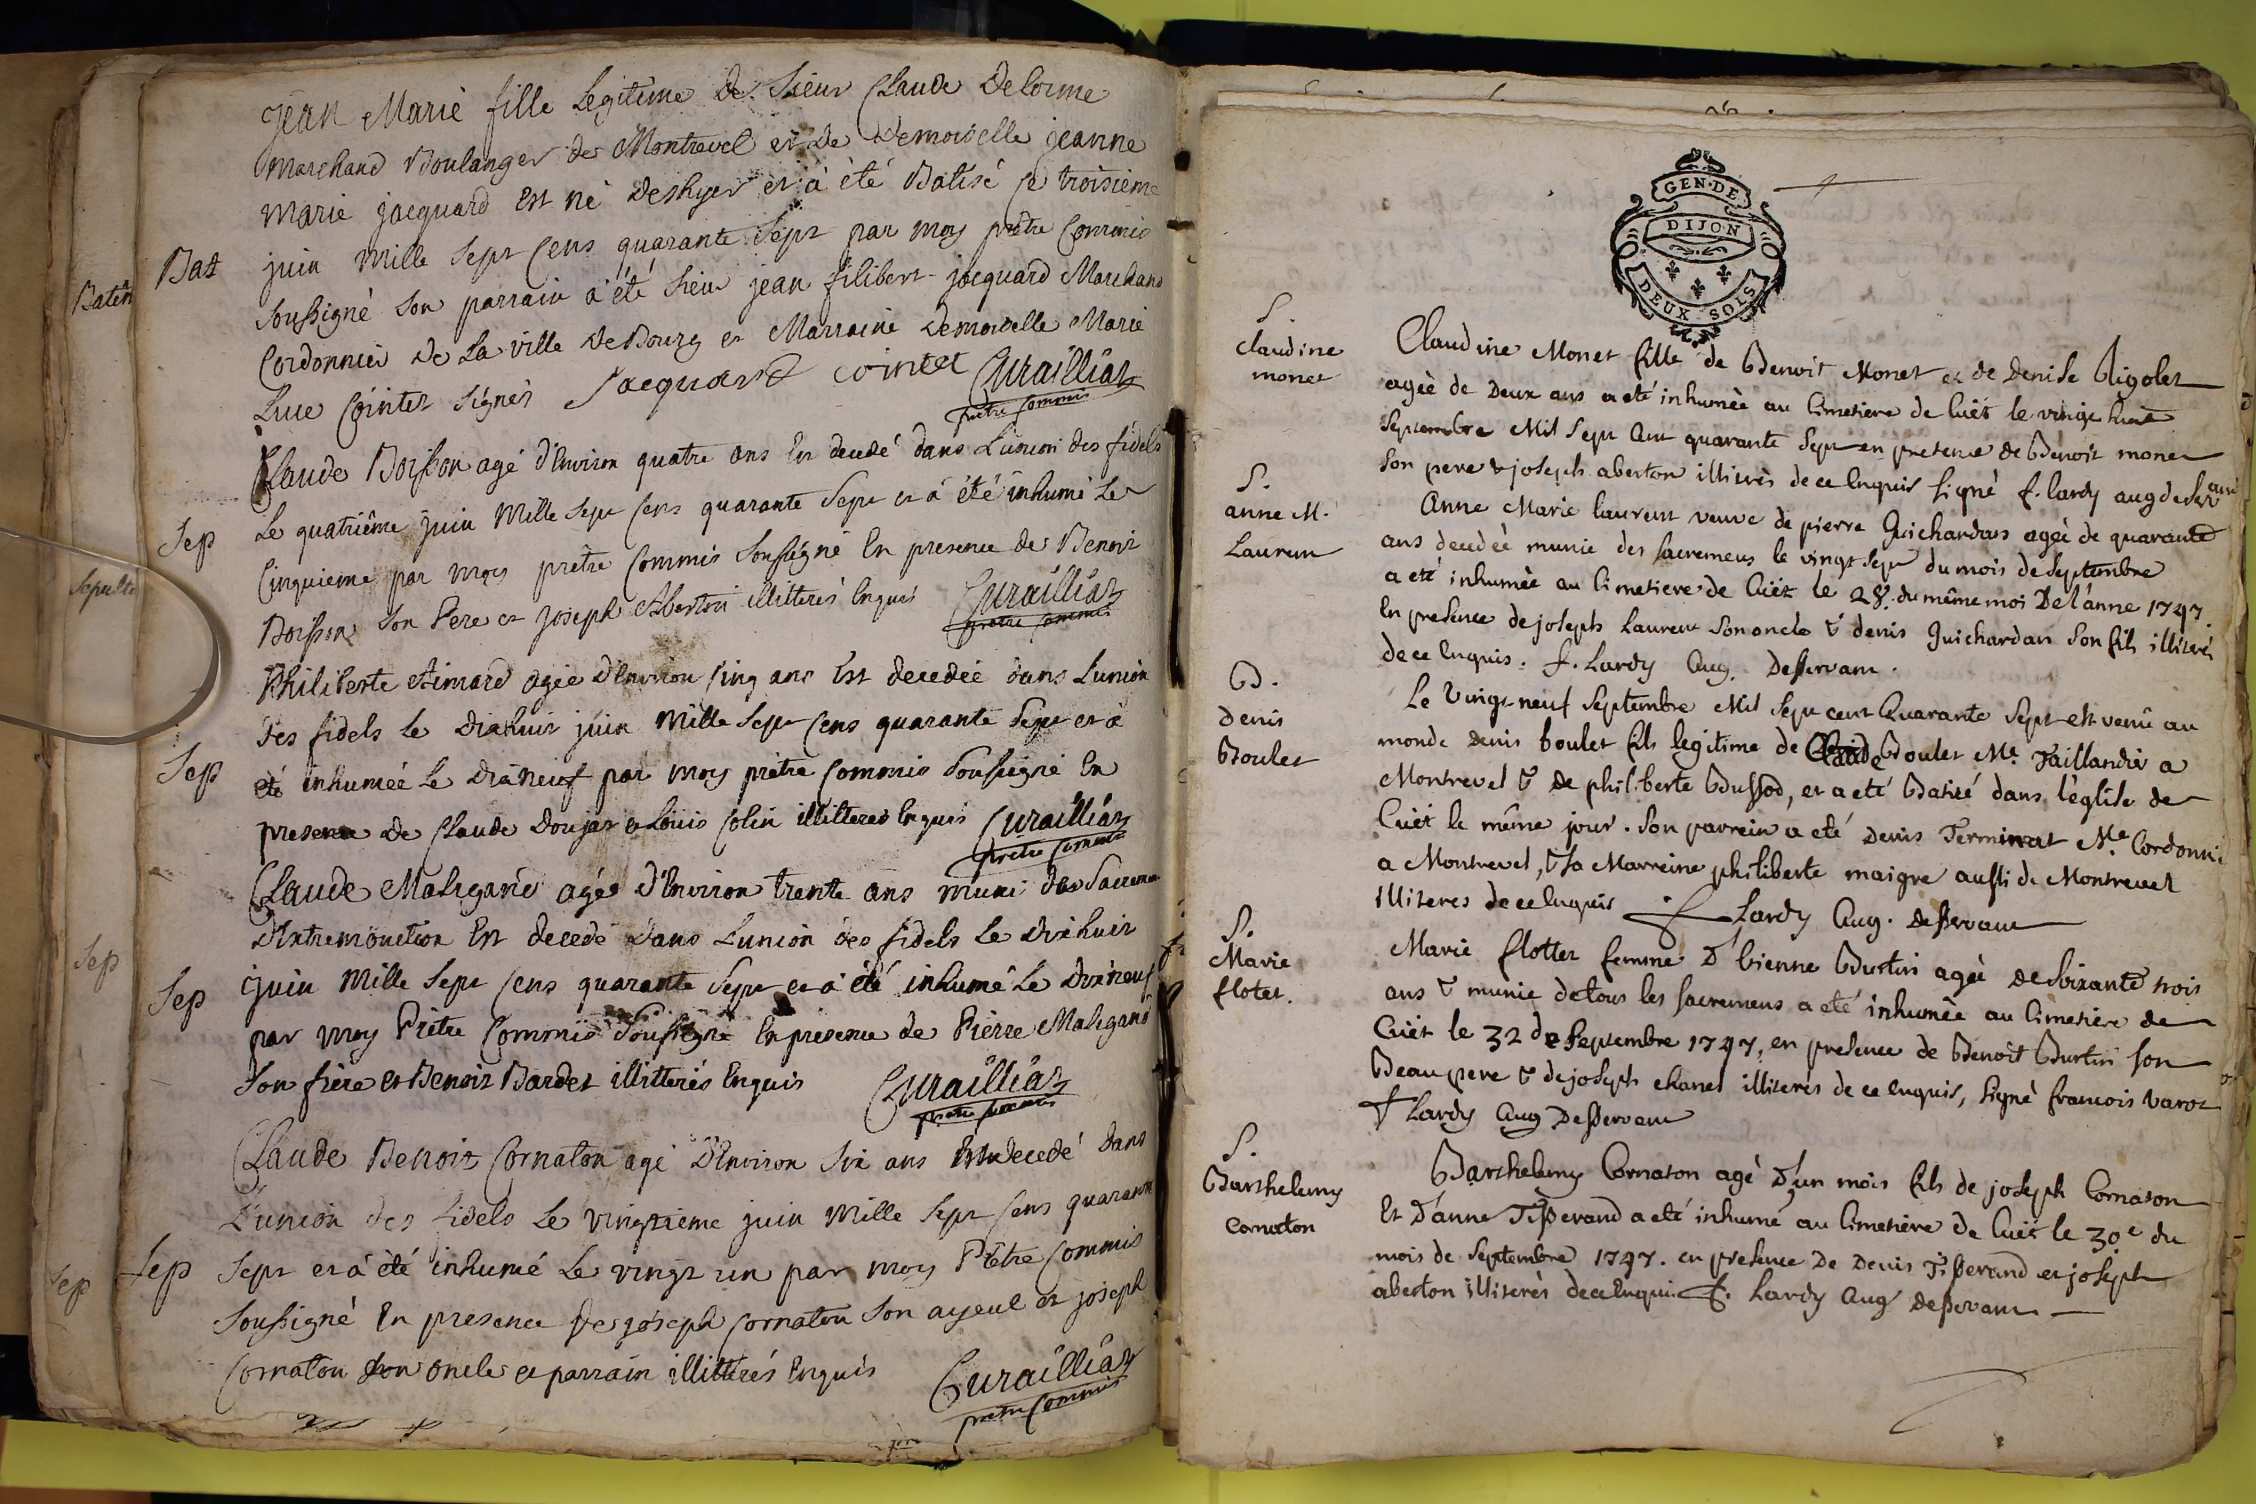 Jean Marie fille Legitime De Sieur Claude Delorme
Marchand Boulanger de Montrevel et De Demoiselle jeanne
Marie jacquard Est né Deshyer et à été Batisé Ce troisieme
Bat
juin Mille Sept Cens quarante Sept par moy prêtre Commis
Batêm
soussigné Son parrain à été Sieur jean filibert jacquard Marchand
Cordonnier De La ville De Bourg et Marraine Demoiselle Marie
Luce Cointet Signés Jacquard cointet Curailliat
prêtre Commis
Claude Boisson agé d'Environ quatre ans Est decedé dans L'union des fidels
Sep
Le quatriême juin Mille Sept Cens quarante Sept et à été inhumé Le
Cinquieme par moy prêtre Commis Soussigné En presence de Benoit
Sepultu
Boisson Son Pere et Joseph Aberton illitterés Enquis Curailliat
prêtre Commis
Philiberte Aimard agée D'Environ Cinq ans Est decedée dans Lunion
Des fidels Le Dixhuit juin Mille Sept Cens quarante Sept et à
Sep
eté inhumée Le Dixneuf par moy prêtre Commis Soussigné En
presence De Claude Doujat et Loüis Colin illitteres Enquis Curailliat
prêtre Commis
Claude Malegand agée d'Environ trente ans muni des Sacremen
D'Extremonction Est decedé Dans Lunion des fidels Le Dixhuit
Sep
juin Mille Sept Cens quarante Sept et à été inhumé Le Dixneuf
Sep
par moy Prêtre Commis Soussigné En presence de Pierre Malegand
Son frère et Benoit Bardet illitterés Enquis Curailliat
prêtre Commis
Claude Benoit Cornaton agé D'Environ Six ans Est decedé Dans
L'union des fidels Le vingtieme juin Mille Sept Cens quarante
Sep
Sep
Sept et à été inhumé Le vingt un par moy Prêtre Commis
Soussigné En presence De joseph Cornaton Son ayeul et joseph
Cornaton Son oncle et parrain illitterés Enquis Curailliat
prêtre Commis
GEN·DE
DIJON
DEUX SOLS
S.
Claudine
monet
Claudine Monet fille de Benoit Monet et de Denise Rigolet
ageè de Deux ans a eté inhumèe au Cimetiere de Cuët le vingt huit
Septembre Mil Sept Cent quarante Sept en presence de Benoit monet
son pere & joseph aberton illiterès de ce Enquis signé f. lardy aug deservant
S.
anne M.
Laurent
Anne Marie laurent veuve de pierre Guichardan ageè de quarante
ans decedeè munie des sacremens le vingt Sept du mois de Septembre
a eté inhumèe au Cimetiere de Cuët le 28. du même moi De l'anne 1747.
En presence de joseph Laurent Son oncle & denis Guichardan Son fils illiterés
de ce Enquis. f. Lardy Aug. Desservant.
B.
Denis
Boulet
Le Vingt-neuf Septembre Mil Sept cent Quarante Sept est venû au
monde Denis boulet fils legitime de Claude Boulet Me. Taillandiè a
Montrevel & De philiberte Bussod, et a eté Batisé dans l'église de
Cuët le même jour. Son parrein a eté Denis Terminet Me. Cordonnie
a Montrevel, & Sa Marreine philiberte maigre aussi de Montrevel
illiteres de ce Enquis f Lardy Aug. Desservant
S.
Marie
flotet.
Marie flottet femme D'Etienne Burtin ageè de Soixante trois
ans & munie de tous les sacremens a eté inhumèe au Cimetière de
Cuët le 32 de Septembre 1747, en presence de Benoît Burtin son
Beaupere & de joseph chanel illiterés de ce Enquis, signé francois Varot
f Lardy Aug Desservant
S.
Barthelemy
Cornaton
Barthelemy Cornaton agè D'un mois fils de joseph Cornaton
Et D'anne Tisserand a eté inhumé au Cimetière de Cuët le 30e du
mois de Septembre 1747. en presence De Denis Tisserand et joseph
aberton illiterès de ce Enquis f. Lardy Aug Desservant